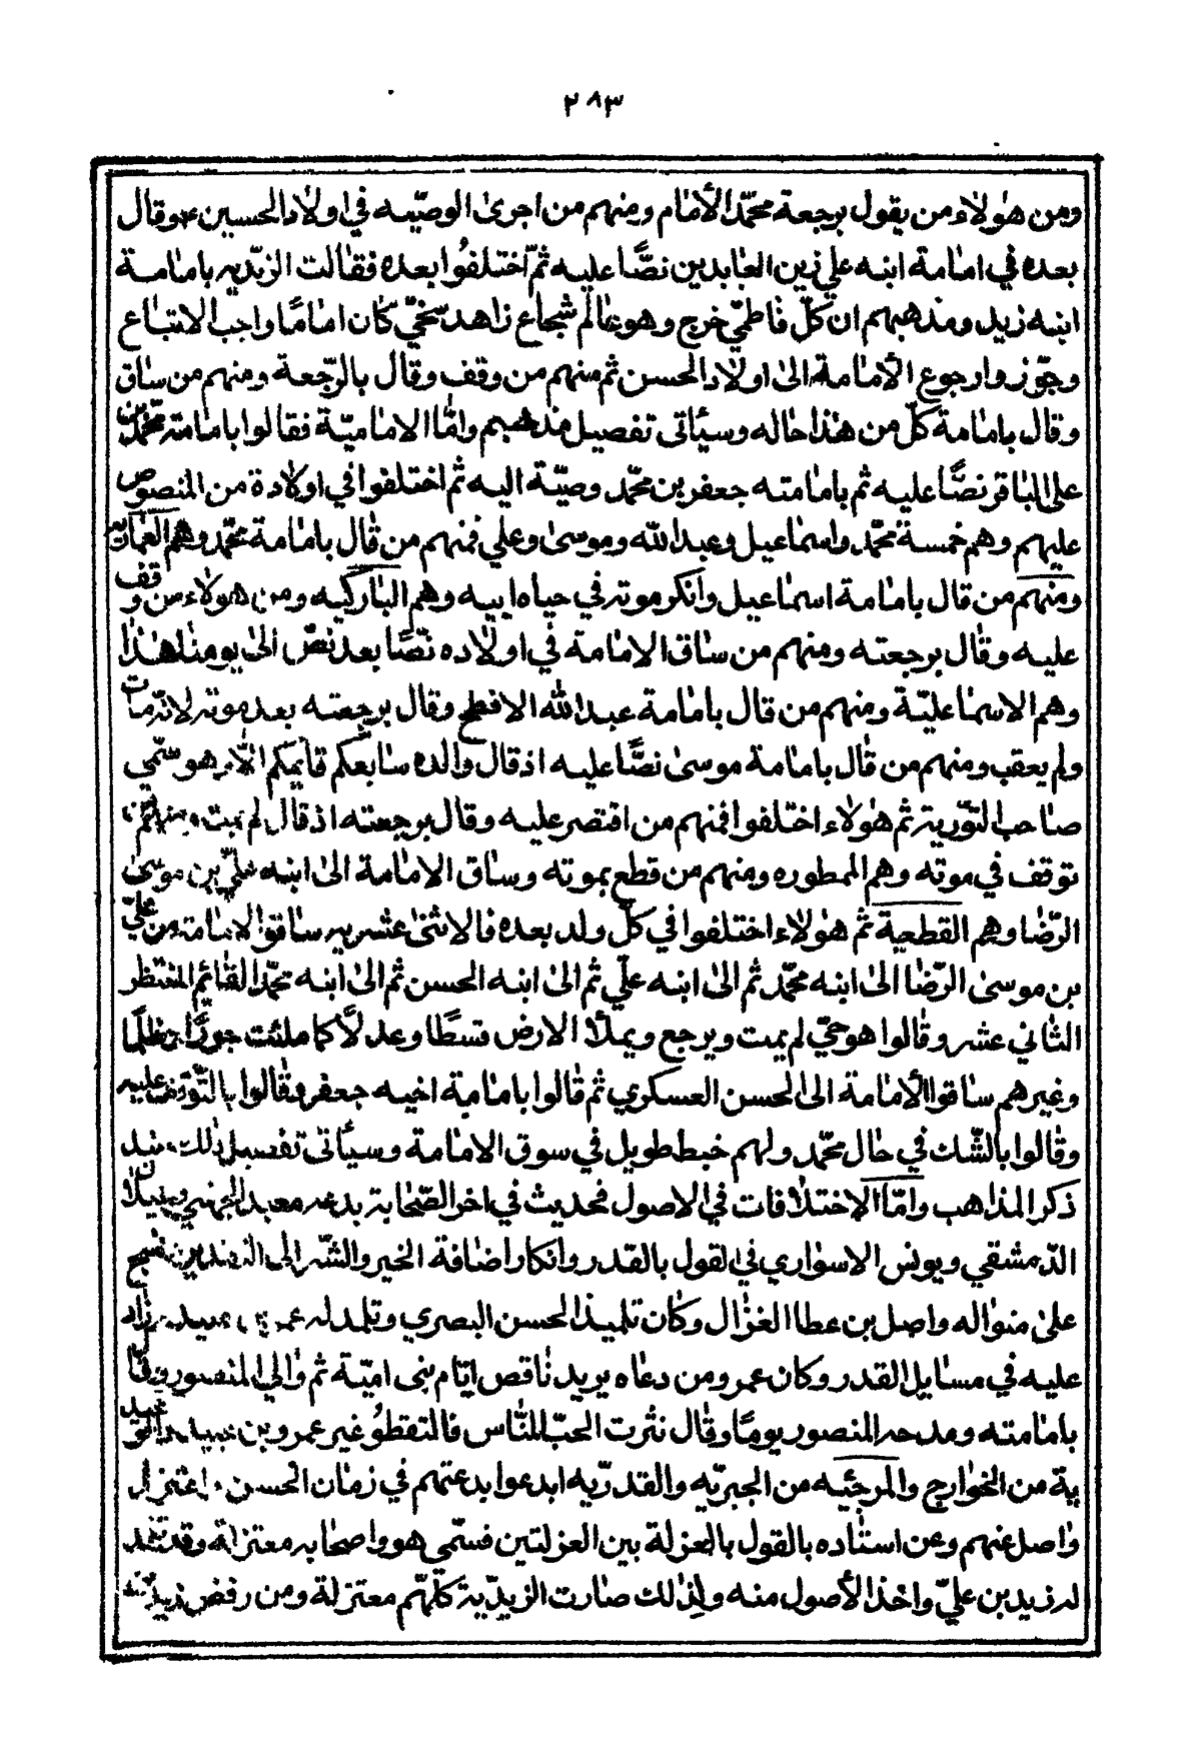 ٢٨٣
ومن هؤلاء من يقول برجعة محمّد الأمام ومنهم من اجرى الوصيّه في اولاد الحسين وقال
بعده في امامة ابنه علي زين العابدين نصًّا عليه ثمّ اختلفوا بعده فقالت الزيّديه بامامة
ابنه زيد ومذهبهم ان كلّ فاطميّ خرج وهو عالم شجاع زاهد سخيّ كان امامًا واجب الاتباع
وجوّزوا رجوع الأمامة الى اولاد الحسن ثم منهم من وقف وقال بالرّجعة ومنهم من ساق
وقال بامامة كلّ من هذا حاله وسيئاتى تفصيل مذهبهم وامّا الاماميّة فقالوا بامامة محمّد بن
على الباقر نصًّا عليه ثم بامامته جعفر بن محمّد وصيّة اليه ثم اختلفوا في اولادة من المنصوص
عليهم وهم خمسة محمّد واسماعيل وعبد الله وموسى وعلي فمنهم من قال بامامة محمّد وهم العمارية
ومنهم من قال بامامة اسماعيل وانكر موته في حياه ابيه وهم الباركيه ومن هولاء من وقف
عليه وقال برجعته ومنهم من ساق الامامة في اولاده نصًّا بعد نصّ الى يومنا هذا
وهم الاسماعليّة ومنهم من قال بامامة عبد الله الافطح وقال برجعته بعد موته لانّه مات
ولم يعقب ومنهم من قال بامامة موسى نصًّا عليه اذ قال والده سابعكم قايمكم الا وهو سمّي
صاحب التّورية ثم هؤلاء اختلفوا فمنهم من اقتصر عليه وقال برجعته اذ قال لم يمت ومنهم من
توقف في موته وهم الممطوره ومنهم من قطع بموته وساق الامامة الى ابنه عليّ بن موسى
الرّضا وهم القطعية ثم هؤلاء اختلفوا في كلّ ولد بعده فالاثنى عشريه ساقوا الامامة من عليّ
بن موسى الرّضا الى ابنه محمّد ثم الى ابنه عليّ ثم الى ابنه الحسن ثم الى ابنه محمّد القائم المنتظر
الثاني عشر وقالوا هو حيّ لم يمت ويرجع ويملأ الارض قسطًا وعدلًا كما ملئت جورًا وظلمًا
وغيرهم ساقوا الأمامة الى الحسن العسكري ثم قالوا بامامية اخيه جعفر وقالوا بالتّوقف عليه
وقالوا بالشّك في حال محمّد ولهم خبط طويل في سوق الامامة وسيئاتى تفصيل ذلك عند
ذكر المذاهب وامّا الاختلافات في الاصول فحديث في اخر الصّحابة بدعه معبد الجهني وغيلان
الدّمشقي ويونس الاسواري في القول بالقدر وانكار اضافة الخير والشّر الى القدر ونسج
على منواله واصل بن عطا الغزال وكان تلميذ الحسن البصري وتلمذ له عمرو بن عبيد وزاد
عليه في مسايل القدر وكان عمرو من دعاه يريد ناقص ايّام بنى اميّة ثم والي المنصور وقال
بامامته ومدحه المنصور يومًا وقال نثرت الحبّ للنّاس فالتقطو غير عمرو بن عبيد
ية من الخوارج والمرجئيه من الجبريّه والقدريّه ابدعوا بدعتهم في زمان الحسن واعتزل
واصل عنهم وعن استاده بالقول بالعزلة بين العزلتين فسمّي هو واصحابه معتزلة وقد تلمذ
له زيد بن عليّ واخذ الأصول منه ولذلك صارت الزيديّة كلّهم معتزلة ومن رفض زيد